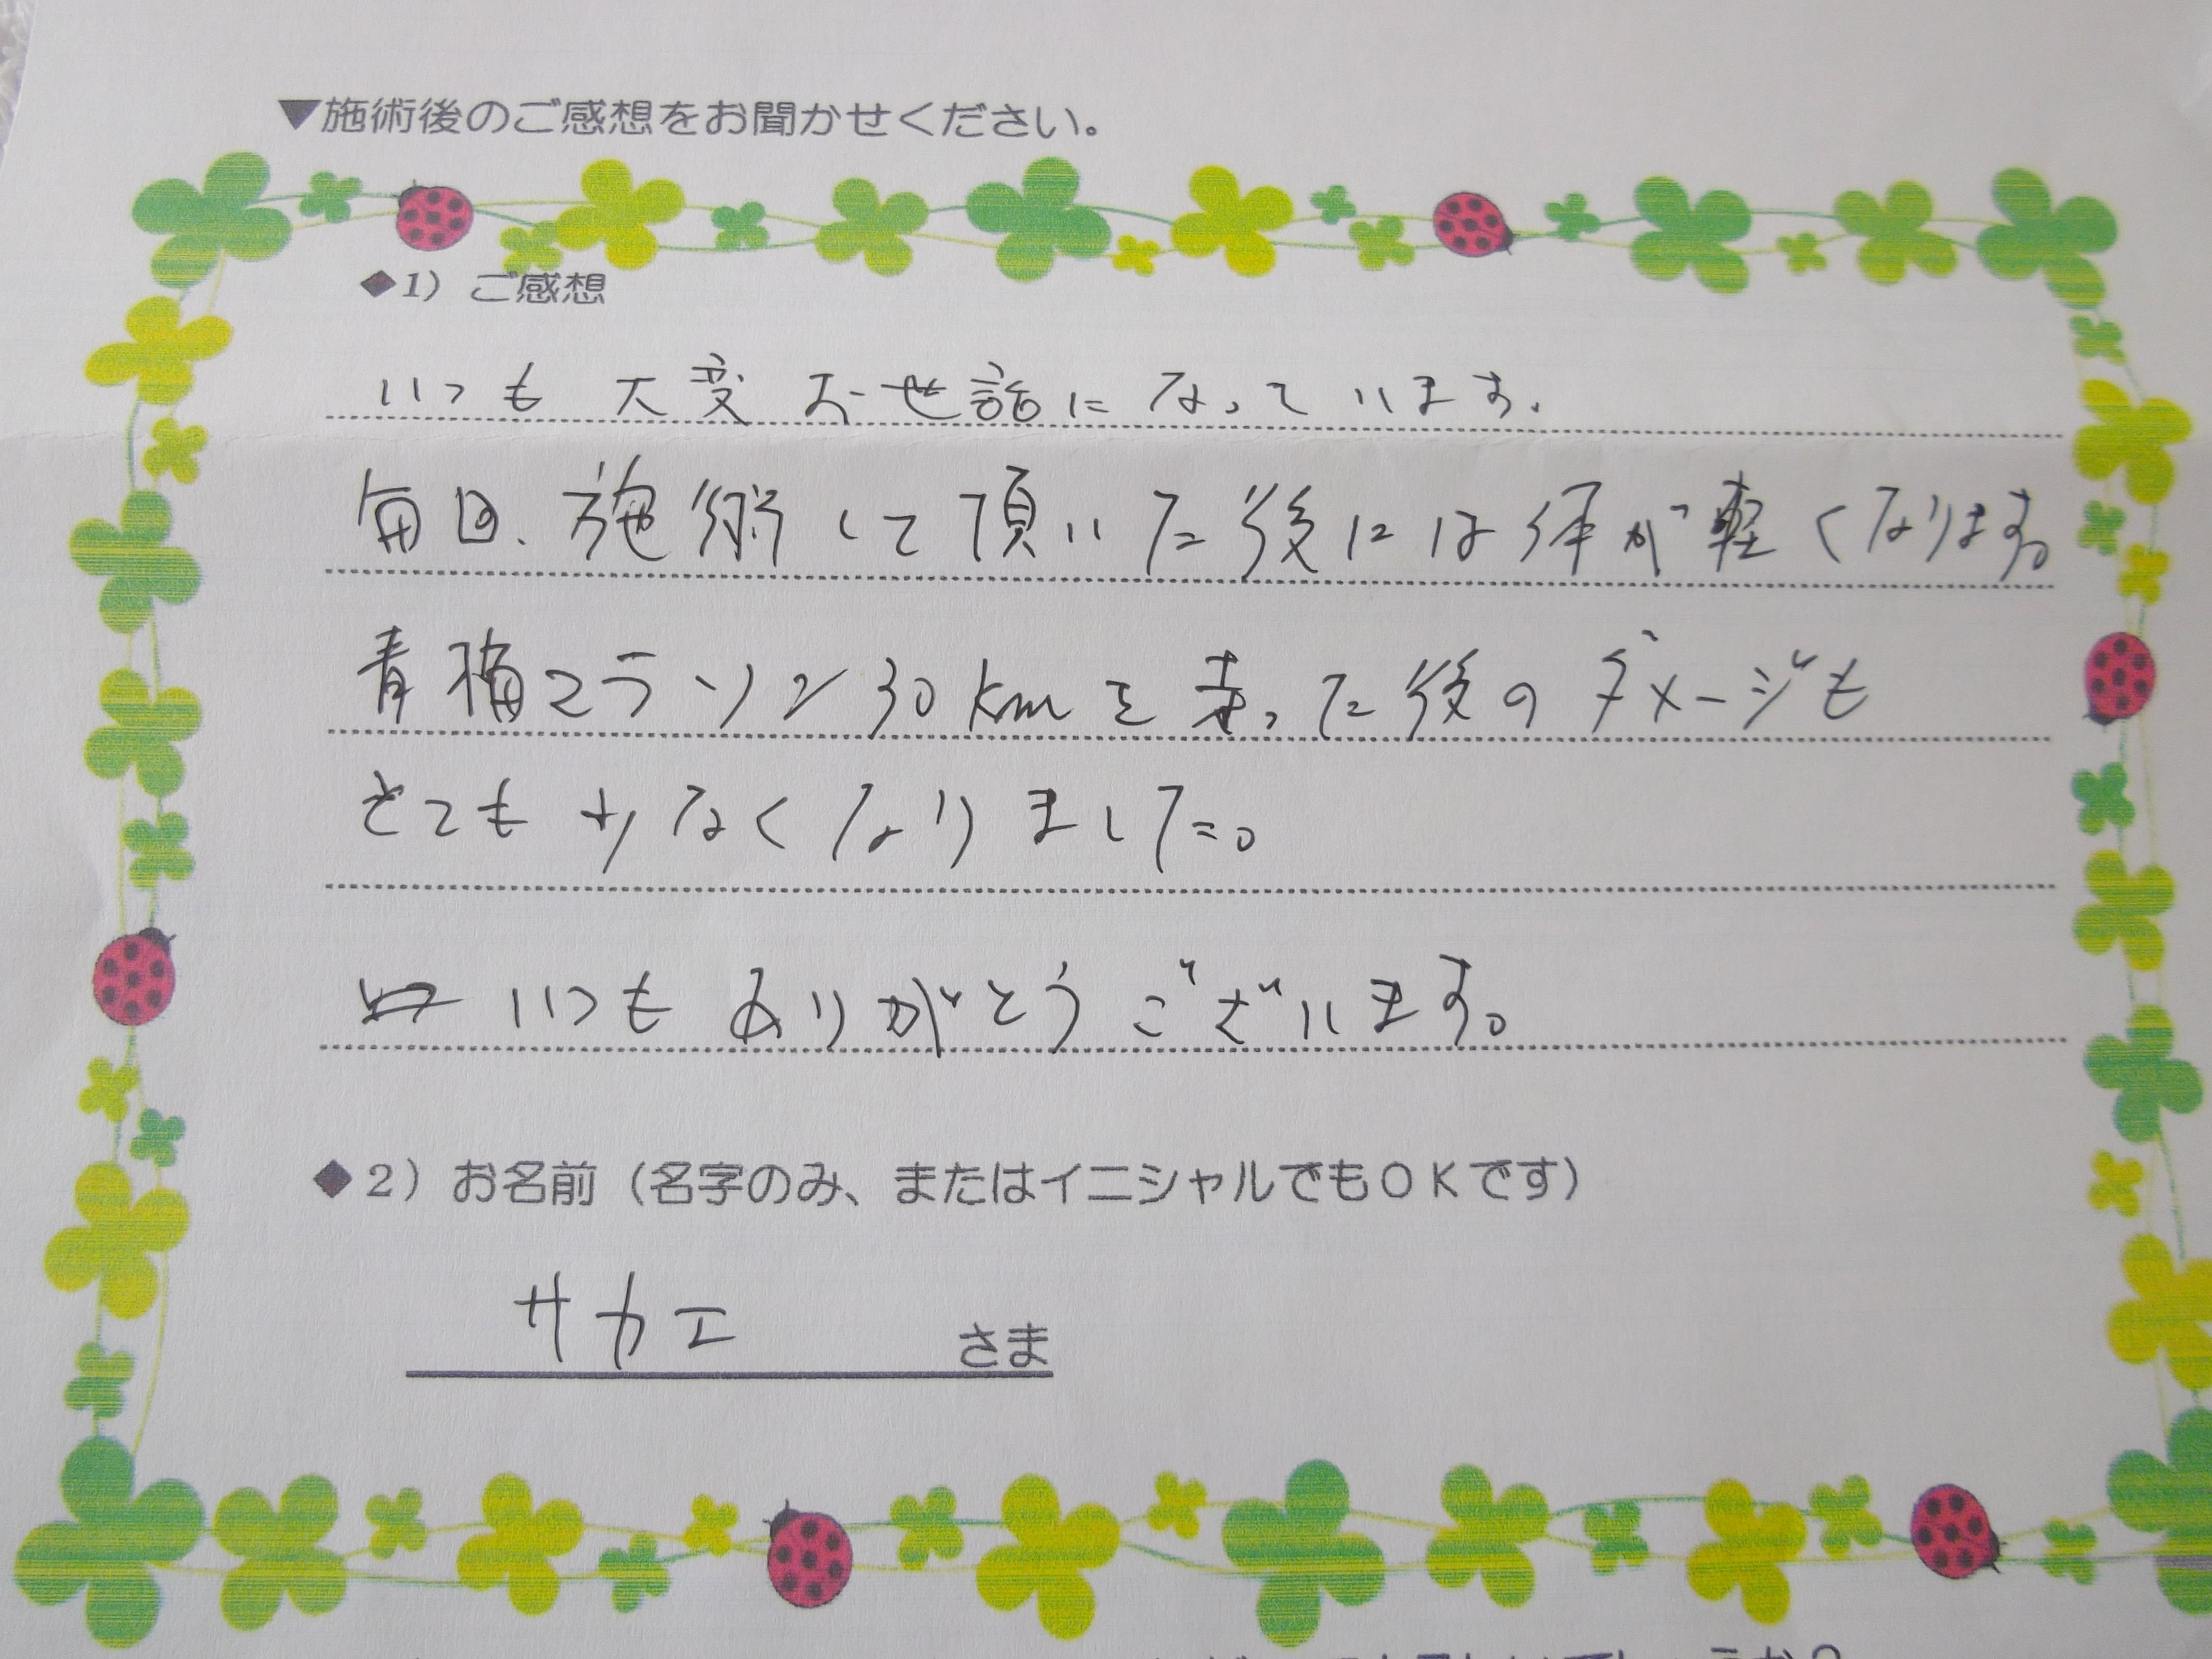 ▼施術後のご感想をお聞かせください。
◆1）ご感想
いつも大変お世話になっています.
毎回、施術して頂いた後には体が軽くなります。
青梅マラソン30kmを走った後のダメージも
とても少なくなりました。
いつもありがとうございます。
◆2）お名前（名字のみ、またはイニシャルでもＯＫです）
サカエ さま